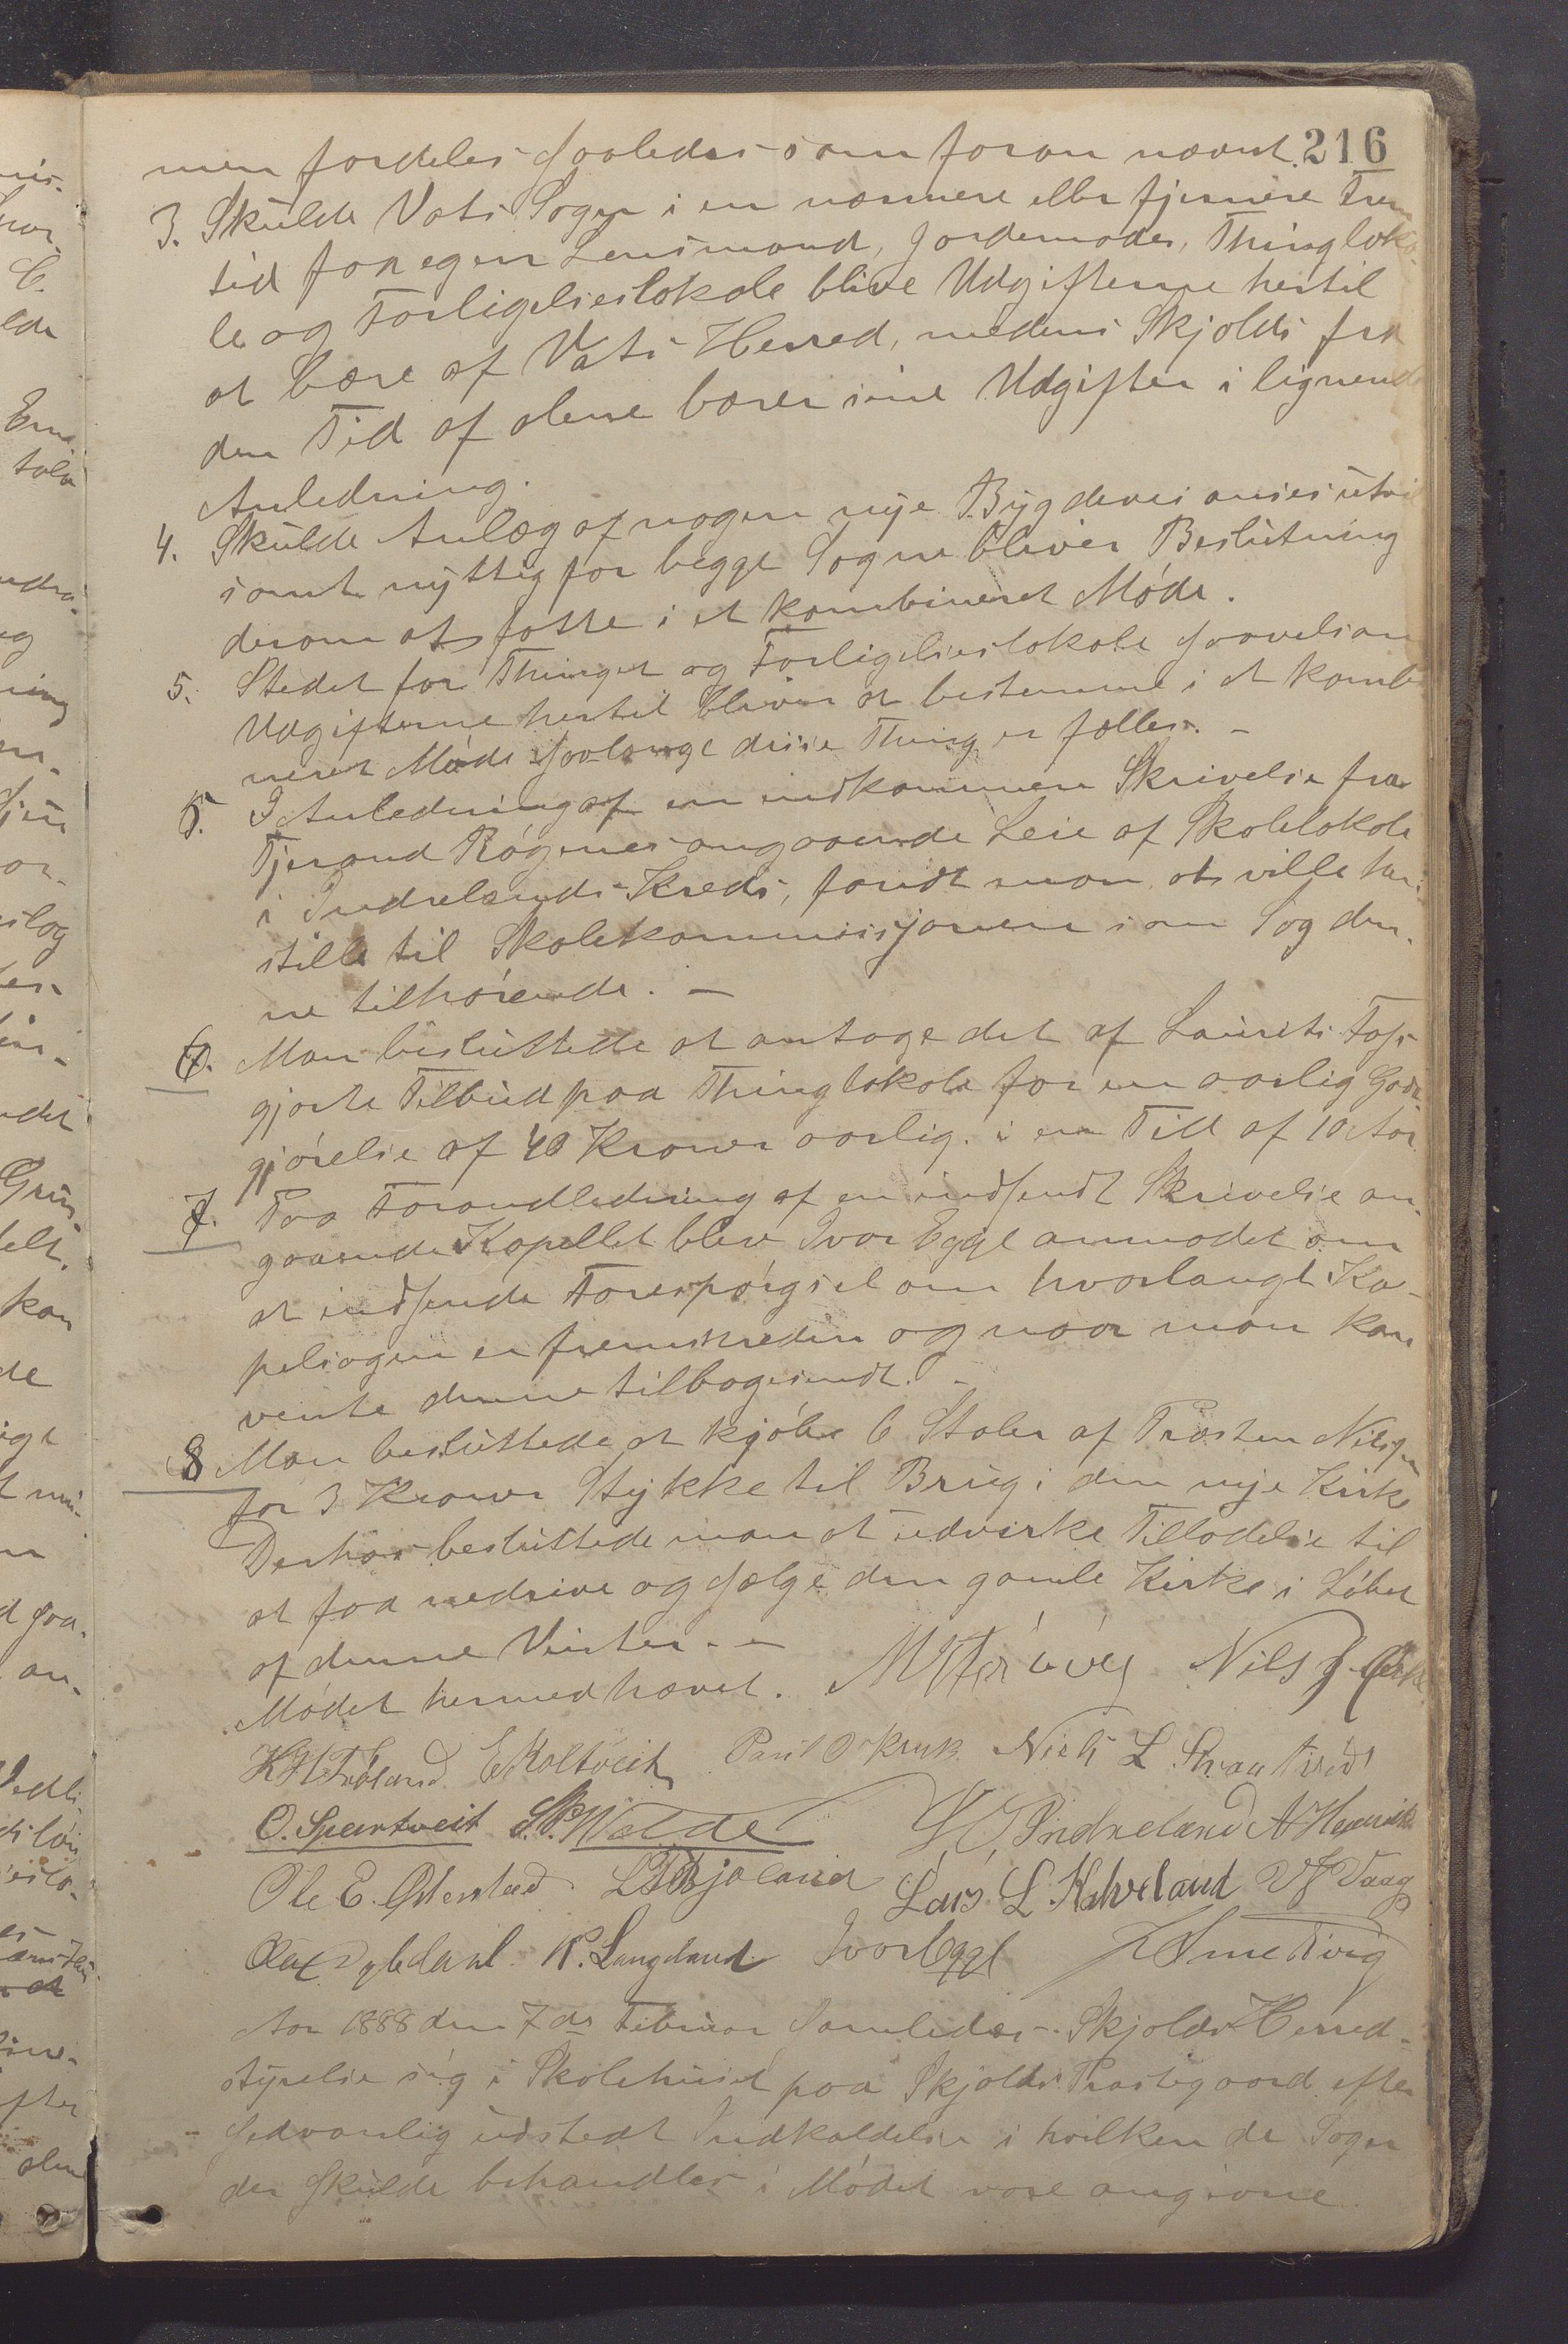 men fordeles saaledes som foran nævnt. 216
3. Skulde Vats Sogn i en nærmere eller fjernere Frem
tid faa egen Lensmand, Jordemoder, Thingloka-
le og Forligelseslokale blive Udgifterne hertil
at bære af Vats Herred, medens Skjolds fra
den Tid af alene bærer sine Udgifter i lignende
Anledning.
4. Skulde Anlæg af nogen nye Bygdevei ansees utvil
somt nyttig for begge Sogne bliver Beslutning
derom at fatte i et kombineret Møde.
5. Stedet for Thinget og Forligelseslokale saavelsom
Udgifterne hertil bliver at bestemme i et kombi
neret Møde saalænge disse Thing er fælles. -
5. I Anledning af en indkommen Skrivelse fra
Tjerand Røgenes angaaende Leie af Skolelokale
i Indrelands Kreds, fandt man at ville hen-
stille til Skolekommissjonen som Sag den-
ne tilhørende. -
6. Man besluttede at antage det af Laurits
gjorte Tilbud paa Thinglokale for en aarlig Godt-
gjørelse af 40 Kroner aarlig. i en Tid af 10 Aar
7. Paa Foranledning af en indsendt Skrivelse an-
gaaende Kapellet blev Ivar Egge anmodet om
at indsende Forespørgsel om hvorlangt Ka-
pelsagen er fremskreden og naar man kan
vente denne tilbagesendt. -
8 Man besluttede at kjøbe 6 Stoler af Præsten Nilsen
for 3 Kroner Stykke til Brug i den nye Kirke
Derhos besluttede man at udvirke Tilladelse til
at faa nedrive og sælge den gamle Kirke i Løbet
af denne Vinter. -
Mødet hermed hævet. Nils
E Koltveit Niels L.
O. Spærtveit S. P. Walde Indreland
Ole E. Østenstad Lars L. Kalveland Vaag
K. Langeland Ivar Egge Smedvig
Aar 1888 den 7de Februar samledes Skjolds Herred-
styrelse sig i Skolehuset paa Skjolds Prestegaard efter
sedvanlig udstedt Indkaldelse i hvilken de Sager
der skulde behandles i Mødet vare angivne.